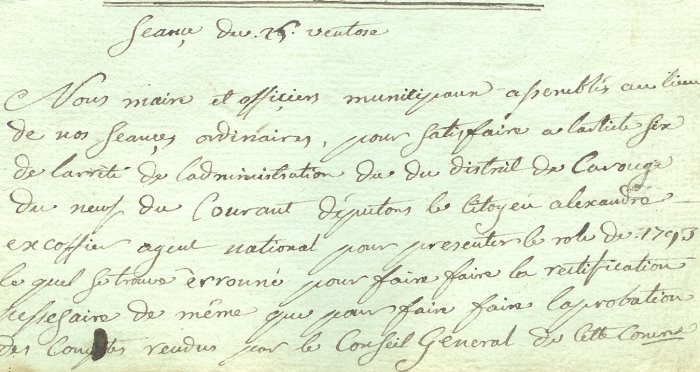 Seançe du 25. ventose
Nous maire et offiçiers muniçipaux assemblés au lieu
de nos seançes ordinaires, pour satisfaire a larticle six
de larrêté de ladministration du du district de Carouge
du neuf du Courant députons le Citoyen alexandre
excoffier agent national pour presenter le role de 1793
le quel se trouve erronné pour faire faire la rectification
nessesaire de même que pour faire faire laprobation
des Comptes rendus par le Conseil General de cette Comune